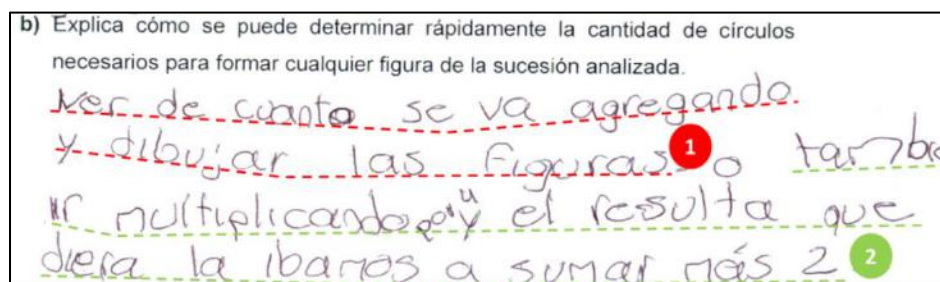 b) Explica cómo se puede determinar rápidamente la cantidad de círculos
necesarios para formar cualquier figura de la sucesión analizada.
Ver de cuanto se va agregando
y dibujar las figuras 1 o tambie
ir multiplicando por 4 el resulta que
diera la ibamos a sumar más 2 2